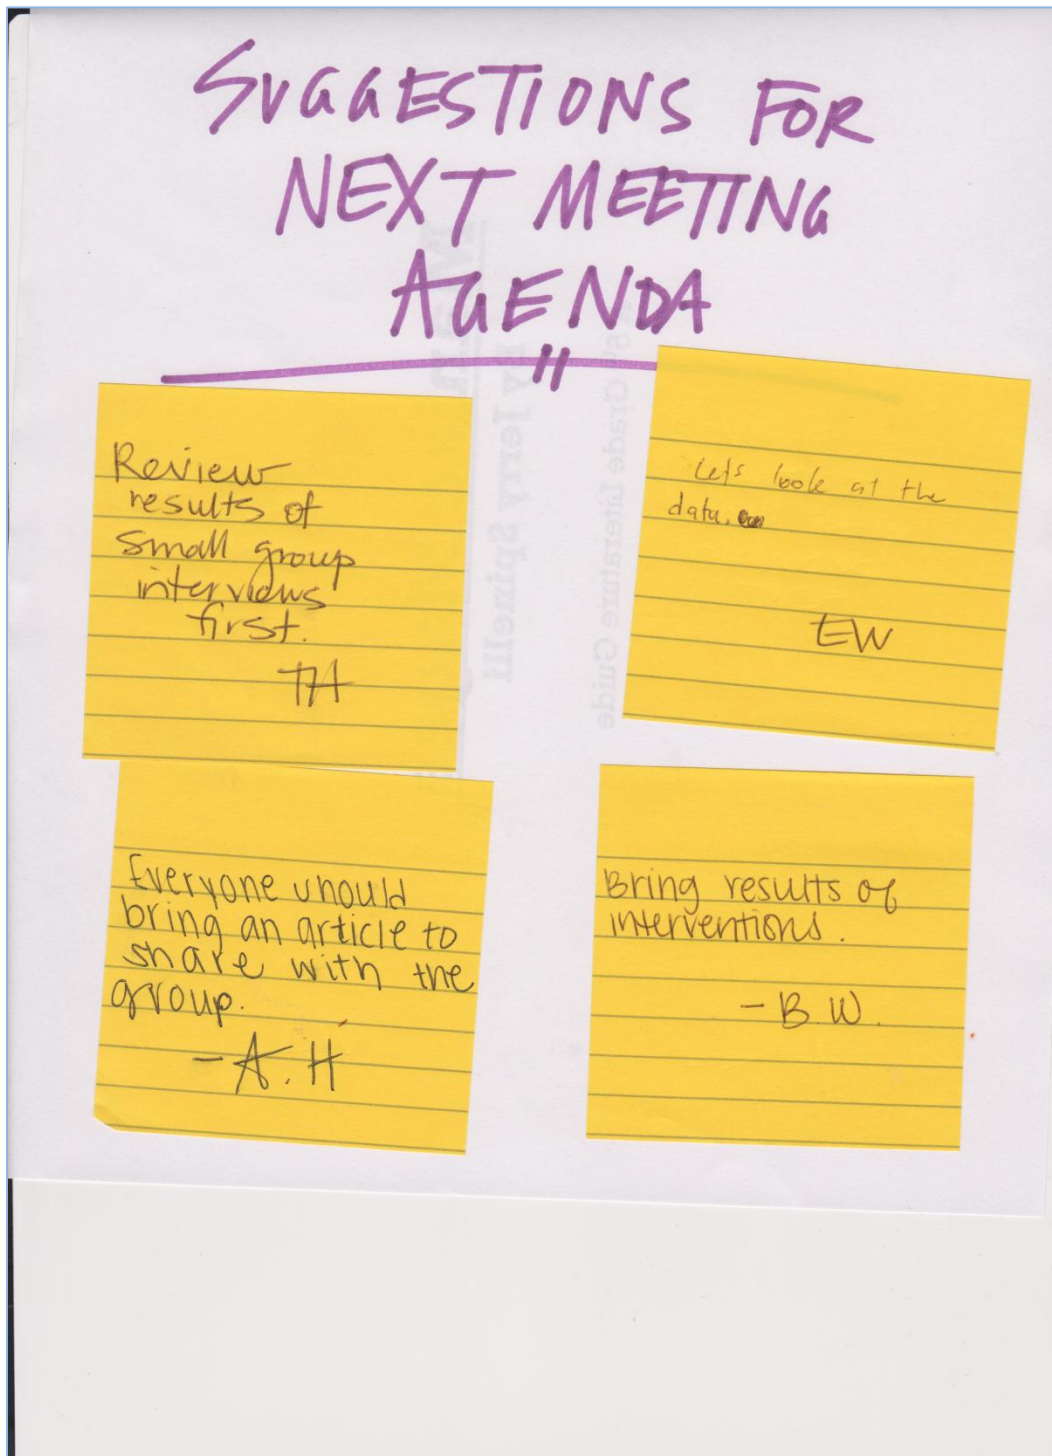 SUGGESTIONS FOR
NEXT MEETING
AGENDA
Review
results of
small group
interviews
first.
TA
Lets look at the
data.
EW
Everyone should
bring an article to
share with the
group.
- A. H
Bring results of
interventions.
- B. W.
by Jerry Spinelli
Grade Literature Guide